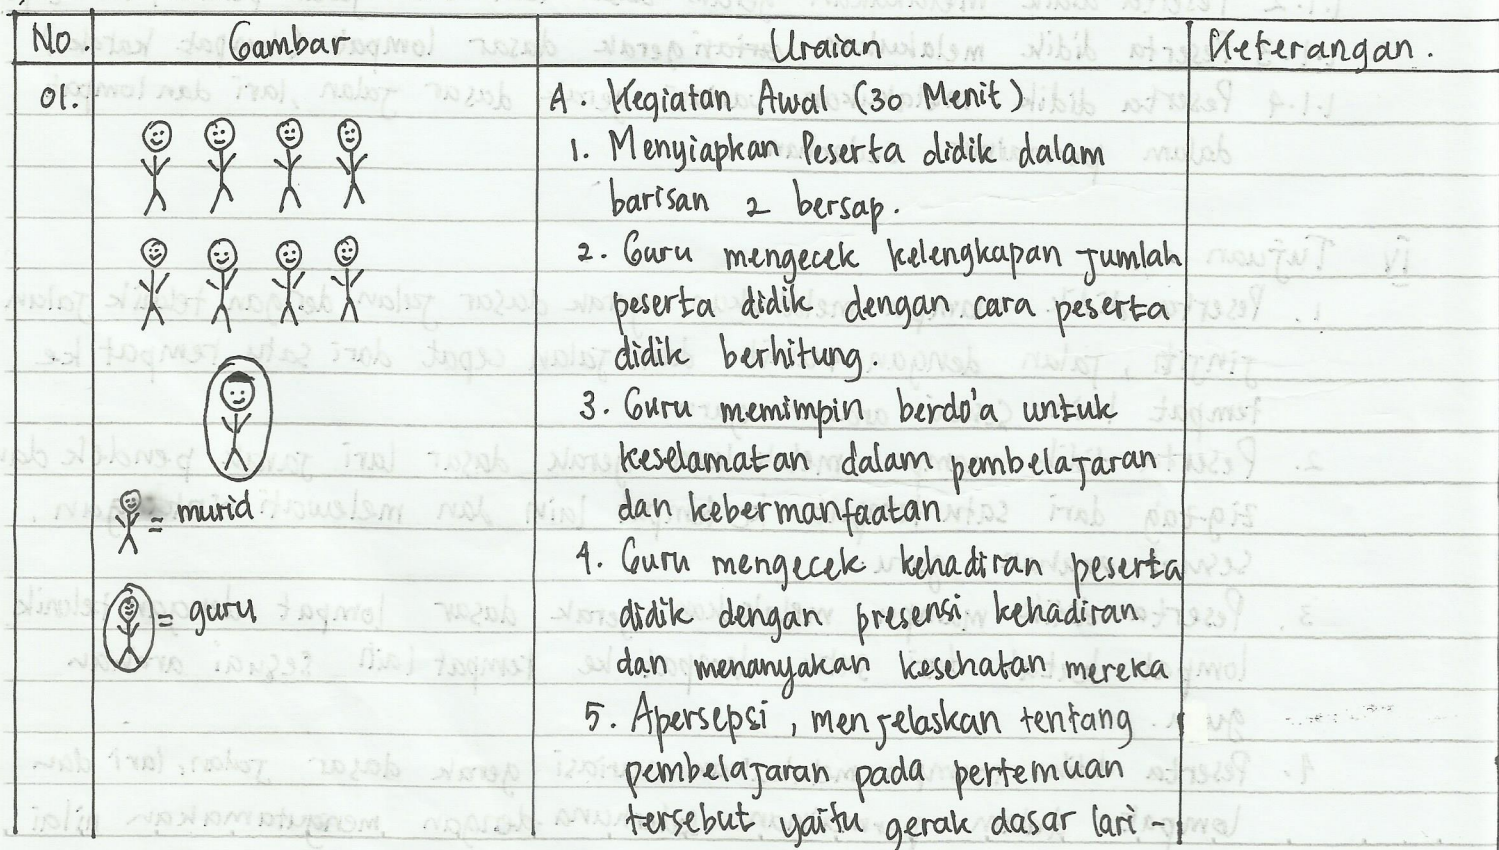 No. Gambar Uraian Keterangan.
01. A. Kegiatan Awal (30 Menit)
1. Menyiapkan Peserta didik dalam
barisan 2 bersap.
2. Guru mengecek kelengkapan jumlah
peserta didik dengan cara peserta
didik berhitung.
3. Guru memimpin berdo'a untuk
keselamatan dalam pembelajaran
dan kebermanfaatan
4. Guru mengecek kehadiran peserta
didik dengan presensi kehadiran
dan menanyakan kesehatan mereka
5. Apersepsi, menjelaskan tentang
pembelajaran pada pertemuan
tersebut yaitu gerak dasar lari -
= murid
= guru